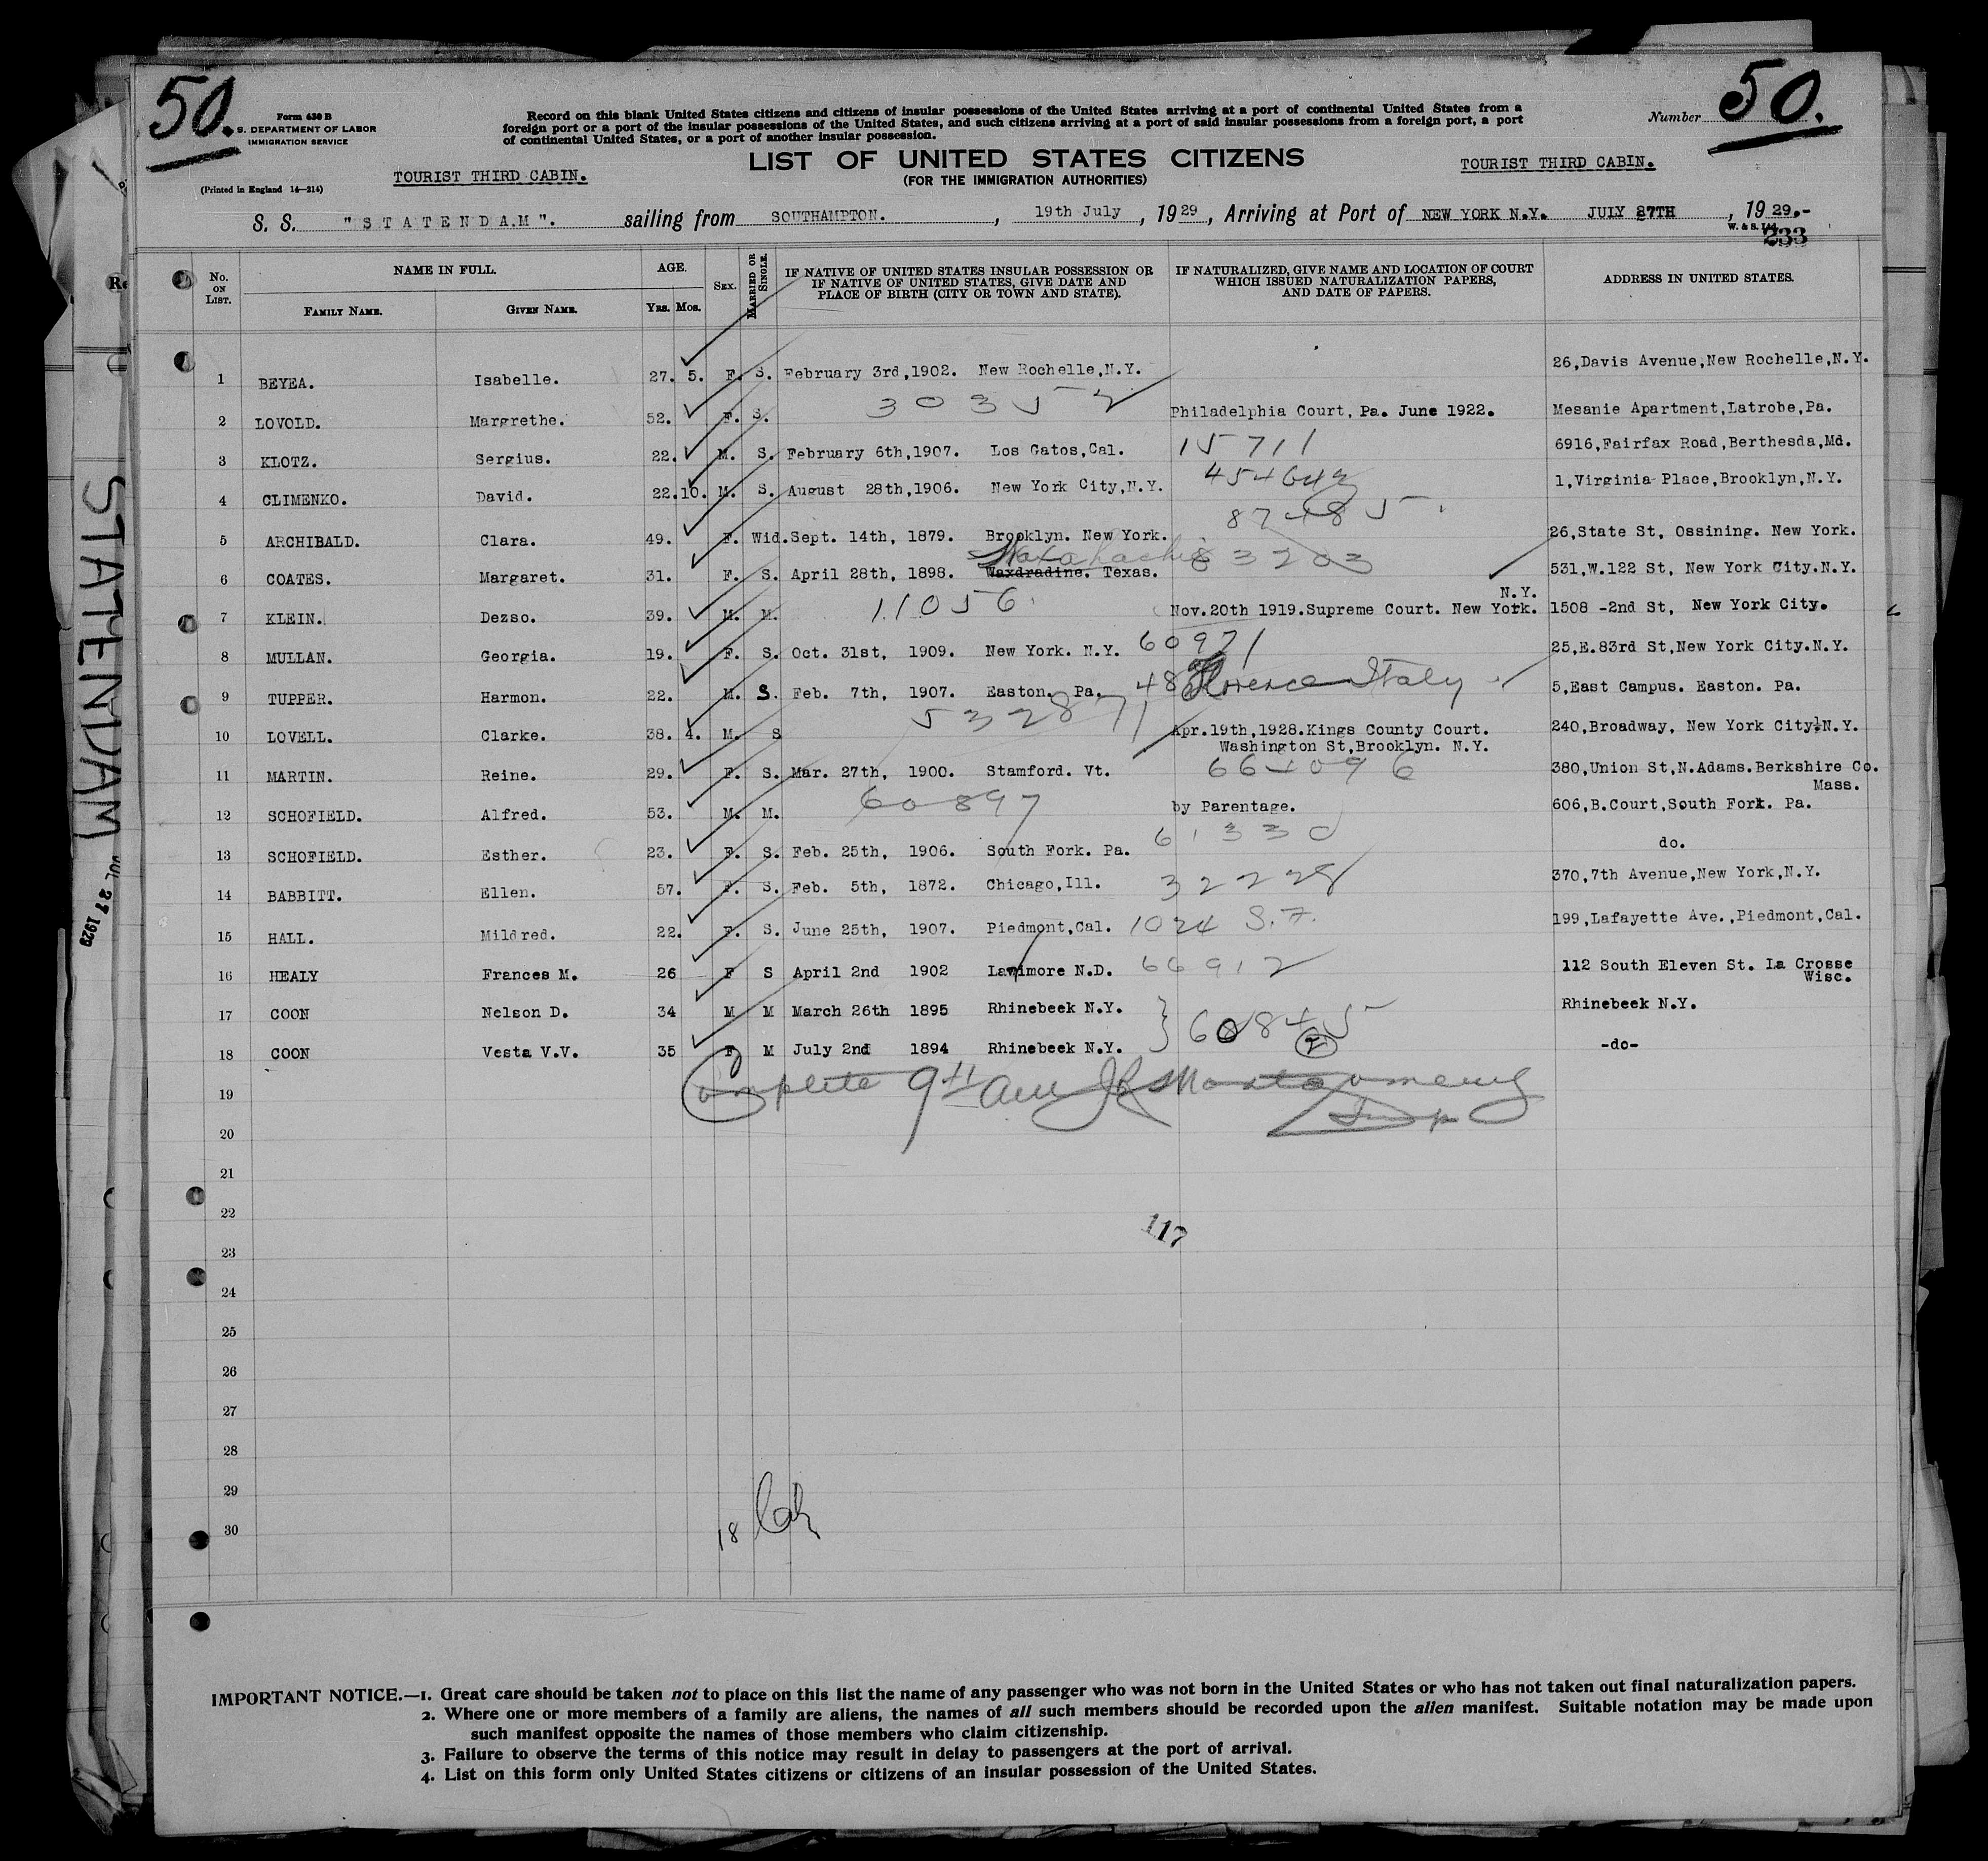 50.
50.
Form 630 B
S. DEPARTMENT OF LABOR
IMMIGRATION SERVICE
(Printed in England 14—214)
Record on this blank United States citizens and citizens of insular possessions of the United States arriving at a port of continental United States from a
foreign port or a port of the insular possessions of the United States, and such citizens arriving at a port of said insular possessions from a foreign port, a port
of continental United States, or a port of another insular possession.
Number
LIST OF UNITED STATES CITIZENS
(FOR THE IMMIGRATION AUTHORITIES)
TOURIST THIRD CABIN.
TOURIST THIRD CABIN.
S. S. "STATENDAM". sailing from SOUTHAMPTON., 19th July, 1929, Arriving at Port of NEW YORK N.Y. JULY 27TH, 1929.-
W. & S. Ltd.
233
No. ON LIST. NAME IN FULL. AGE. SEX. MARRIED OR SINGLE. IF NATIVE OF UNITED STATES INSULAR POSSESSION OR IF NATIVE OF UNITED STATES, GIVE DATE AND PLACE OF BIRTH (CITY OR TOWN AND STATE). IF NATURALIZED, GIVE NAME AND LOCATION OF COURT WHICH ISSUED NATURALIZATION PAPERS, AND DATE OF PAPERS. ADDRESS IN UNITED STATES.
FAMILY NAME. GIVEN NAME. YRS. MOS.
1 BEYEA. Isabelle. 27. 5. F. S. February 3rd,1902. New Rochelle,N.Y. 26,Davis Avenue,New Rochelle,N.Y.
30352
2 LOVOLD. Margrethe. 52. F. S. Philadelphia Court, Pa. June 1922. Mesanie Apartment,Latrobe,Pa.
15711
3 KLOTZ. Sergius. 22. M. S. February 6th,1907. Los Gatos,Cal. 6916,Fairfax Road,Berthesda,Md.
454642
4 CLIMENKO. David. 22.10. M. S. August 28th,1906. New York City,N.Y. 1,Virginia Place,Brooklyn,N.Y.
87485
5 ARCHIBALD. Clara. 49. F. Wid. Sept. 14th, 1879. Brooklyn. New York. 26,State St, Ossining. New York.
Waxahachie 83203
6 COATES. Margaret. 31. F. S. April 28th, 1898. Waxdradine. Texas. 531,W.122 St, New York City.N.Y.
11056
7 KLEIN. Dezso. 39. M. M. Nov.20th 1919.Supreme Court. New York. N.Y. 1508 -2nd St, New York City.
60971
8 MULLAN. Georgia. 19. F. S. Oct. 31st, 1909. New York. N.Y. 25,E.83rd St,New York City.N.Y.
48 Florence Italy
9 TUPPER. Harmon. 22. M. S. Feb. 7th, 1907. Easton. Pa. 5,East Campus. Easton. Pa.
532871
10 LOVELL. Clarke. 38. 4. M. S Apr.19th,1928.Kings County Court. 240,Broadway, New York City.N.Y.
Washington St,Brooklyn. N.Y.
11 MARTIN. Reine. 29. F. S. Mar. 27th, 1900. Stamford. Vt. 380,Union St,N.Adams.Berkshire Co.
Mass.
60897
12 SCHOFIELD. Alfred. 53. M. M. by Parentage. 606,B.Court,South Fork. Pa.
61330
13 SCHOFIELD. Esther. 23. F. S. Feb. 25th, 1906. South Fork. Pa. do.
14 BABBITT. Ellen. 57. F. S. Feb. 5th, 1872. Chicago,Ill. 32228 370,7th Avenue,New York,N.Y.
15 HALL. Mildred. 22. F. S. June 25th, 1907. Piedmont,Cal. 1024 S.F. 199,Lafayette Ave.,Piedmont,Cal.
16 HEALY Frances M. 26 F S April 2nd 1902 Larimore N.D. 66912 112 South Eleven St. La Crosse
Wisc.
17 COON Nelson D. 34 M M March 26th 1895 Rhinebeek N.Y. 60845 Rhinebeek N.Y.
18 COON Vesta V.V. 35 F M July 2nd 1894 Rhinebeek N.Y. 2 -do-
19
Complete 9th Montgomery
Insp
20
21
22
117
23
24
25
26
27
28
29
30
18
IMPORTANT NOTICE.—1. Great care should be taken not to place on this list the name of any passenger who was not born in the United States or who has not taken out final naturalization papers.
2. Where one or more members of a family are aliens, the names of all such members should be recorded upon the alien manifest. Suitable notation may be made upon
such manifest opposite the names of those members who claim citizenship.
3. Failure to observe the terms of this notice may result in delay to passengers at the port of arrival.
4. List on this form only United States citizens or citizens of an insular possession of the United States.
STATENDAM
JUL 27 1929